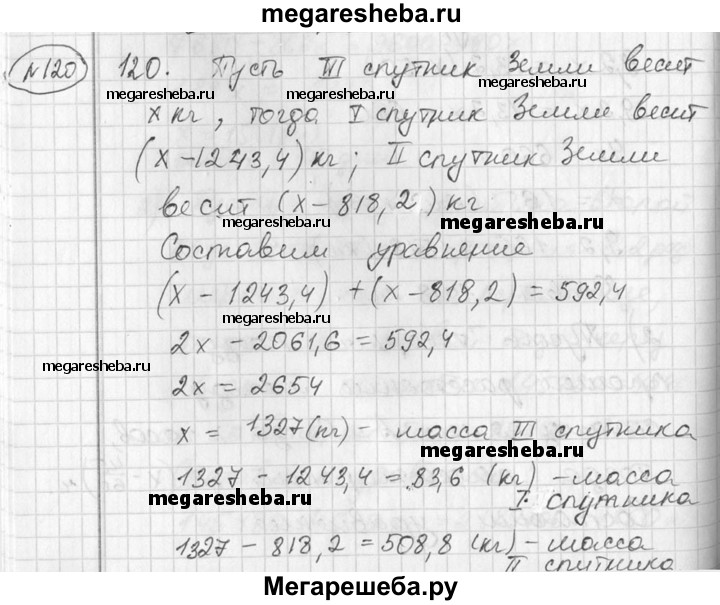 megaresheba.ru
№120 120. Пусть III спутник Земли весит
megaresheba.ru megaresheba.ru
x кг, тогда I спутник Земли весит
megaresheba.ru
(x-1243,4) кг; II спутник Земли
весит (x-818,2) кг
megaresheba.ru megaresheba.ru
Составим уравнение
(x-1243,4)+(x-818,2)=592,4
megaresheba.ru
2x-2061,6=592,4
megaresheba.ru megaresheba.ru
2x=2654
x=1327(кг)-масса III спутника
megaresheba.ru
1327-1243,4=83,6 (кг)-масса
megaresheba.ru
I спутника
1327-818,2=508,8 (кг)-масса
megaresheba.ru
II спутника
Мегарешеба.ру